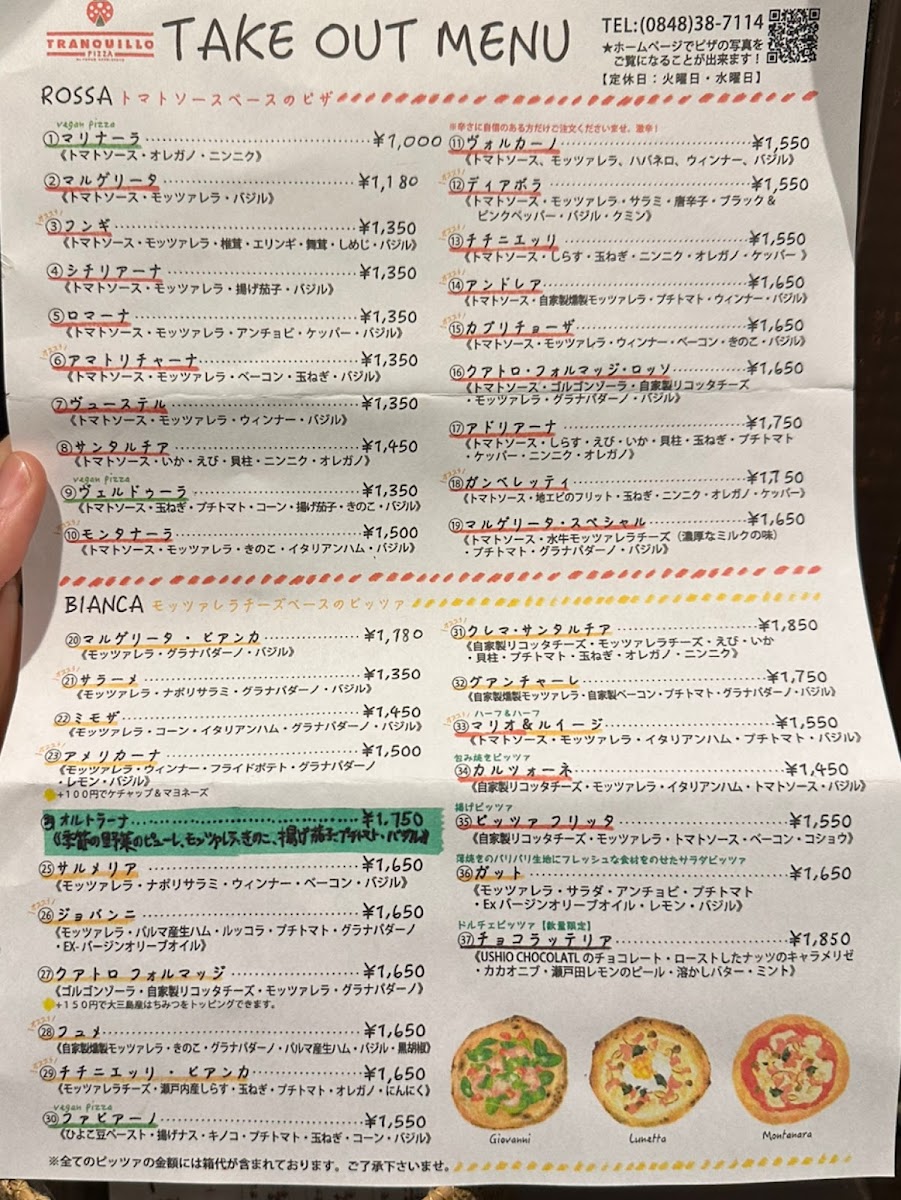 TRANQUILLO
PIZZA
TAKE OUT MENU
TEL:(0848)38-7114
★ホームページでピザの写真を
ご覧になることが出来ます！
【定休日：火曜日・水曜日】
ROSSA トマトソースベースのピザ
vegan pizza
①マリナーラ ¥1,000
《トマトソース・オレガノ・ニンニク》
②マルゲリータ ¥1,180
《トマトソース・モッツァレラ・バジル》
オススメ!
③フンギ ¥1,350
《トマトソース・モッツァレラ・椎茸・エリンギ・舞茸・しめじ・バジル》
④シチリアーナ ¥1,350
《トマトソース・モッツァレラ・揚げ茄子・バジル》
⑤ロマーナ ¥1,350
《トマトソース・モッツァレラ・アンチョビ・ケッパー・バジル》
オススメ!
⑥アマトリチャーナ ¥1,350
《トマトソース・モッツァレラ・ベーコン・玉ねぎ・バジル》
⑦ヴューステル ¥1,350
《トマトソース・モッツァレラ・ウィンナー・バジル》
⑧サンタルチア ¥1,450
《トマトソース・いか・えび・貝柱・ニンニク・オレガノ》
vegan pizza
⑨ヴェルドゥーラ ¥1,350
《トマトソース・玉ねぎ・プチトマト・コーン・揚げ茄子・きのこ・バジル》
オススメ!
⑩モンタナーラ ¥1,500
《トマトソース・モッツァレラ・きのこ・イタリアンハム・バジル》
※辛さに自信のある方だけご注文くださいませ。激辛！
⑪ヴォルカーノ ¥1,550
《トマトソース、モッツァレラ、ハバネロ、ウィンナー、バジル》
オススメ!
⑫ディアボラ ¥1,550
《トマトソース・モッツァレラ・サラミ・唐辛子・ブラック＆
ピンクペッパー・バジル・クミン》
オススメ!
⑬チチニエッリ ¥1,550
《トマトソース・しらす・玉ねぎ・ニンニク・オレガノ・ケッパー》
オススメ!
⑭アンドレア ¥1,650
《トマトソース・自家製燻製モッツァレラ・プチトマト・ウィンナー・バジル》
オススメ!
⑮カプリチョーザ ¥1,650
《トマトソース・モッツァレラ・ウィンナー・ベーコン・きのこ・バジル》
⑯クアトロ・フォルマッジ・ロッソ ¥1,650
《トマトソース・ゴルゴンゾーラ・自家製リコッタチーズ
・モッツァレラ・グラナパダーノ・バジル》
⑰アドリアーナ ¥1,750
《トマトソース・しらす・えび・いか・貝柱・玉ねぎ・プチトマト
・ケッパー・ニンニク・オレガノ》
オススメ!
⑱ガンベレッティ ¥1,750
《トマトソース・地エビのフリット・玉ねぎ・ニンニク・オレガノ・ケッパー》
⑲マルゲリータ・スペシャル ¥1,650
《トマトソース・水牛モッツァレラチーズ（濃厚なミルクの味）
・プチトマト・グラナパダーノ・バジル》
BIANCA モッツァレラチーズベースのピッツァ
⑳マルゲリータ・ビアンカ ¥1,180
《モッツァレラ・グラナパダーノ・バジル》
オススメ!
㉑サラーメ ¥1,350
《モッツァレラ・ナポリサラミ・グラナパダーノ・バジル》
㉒ミモザ ¥1,450
《モッツァレラ・コーン・イタリアンハム・グラナパダーノ・バジル》
オススメ!
㉓アメリカーナ ¥1,500
《モッツァレラ・ウィンナー・フライドポテト・グラナパダーノ
・レモン・バジル》
+１００円でケチャップ＆マヨネーズ
㉔オルトラーナ ¥1,750
《季節の野菜のピューレ、モッツァレラ、きのこ、揚げ茄子、プチトマト・バジル》
㉕サルメリア ¥1,650
《モッツァレラ・ナポリサラミ・ウィンナー・ベーコン・バジル》
オススメ!
㉖ジョバンニ ¥1,650
《モッツァレラ・パルマ産生ハム・ルッコラ・プチトマト・グラナパダーノ
・EX-バージンオリーブオイル》
オススメ!
㉗クアトロ フォルマッジ ¥1,650
《ゴルゴンゾーラ・自家製リコッタチーズ・モッツァレラ・グラナパダーノ》
+１５０円で大三島産はちみつをトッピングできます。
オススメ!
㉘フュメ ¥1,650
《自家製燻製モッツァレラ・きのこ・グラナパダーノ・パルマ産生ハム・バジル・黒胡椒》
オススメ!
㉙チチニエッリ・ビアンカ ¥1,650
《モッツァレラチーズ・瀬戸内産しらす・玉ねぎ・プチトマト・オレガノ・にんにく》
vegan pizza
㉚ファビアーノ ¥1,550
《ひよこ豆ペースト・揚げナス・キノコ・プチトマト・玉ねぎ・コーン・バジル》
オススメ!
㉛クレマ・サンタルチア ¥1,850
《自家製リコッタチーズ・モッツァレラチーズ・えび・いか
・貝柱・プチトマト・玉ねぎ・オレガノ・ニンニク》
㉜グアンチャーレ ¥1,750
《自家製燻製モッツァレラ・自家製ベーコン・プチトマト・グラナパダーノ・バジル》
オススメ!
ハーフ＆ハーフ
㉝マリオ＆ルイージ ¥1,550
《トマトソース・モッツァレラ・イタリアンハム・プチトマト・バジル》
包み焼きピッツァ
オススメ!
㉞カルツォーネ ¥1,450
《自家製リコッタチーズ・モッツァレラ・イタリアンハム・トマトソース・バジル》
揚げピッツァ
㉟ピッツァ フリッタ ¥1,550
《自家製リコッタチーズ・モッツァレラ・トマトソース・ベーコン・コショウ》
薄焼きのパリパリ生地にフレッシュな食材をのせたサラダピッツァ
㊱ガット ¥1,650
《モッツァレラ・サラダ・アンチョビ・プチトマト
・Exバージンオリーブオイル・レモン・バジル》
ドルチェピッツァ【数量限定】
㊲チョコラッテリア ¥1,850
《USHIO CHOCOLATLのチョコレート・ローストしたナッツのキャラメリゼ
・カカオニブ・瀬戸田レモンのピール・溶かしバター・ミント》
Giovanni
Lunetta
Montanara
※全てのピッツァの金額には箱代が含まれております。ご了承下さいませ。